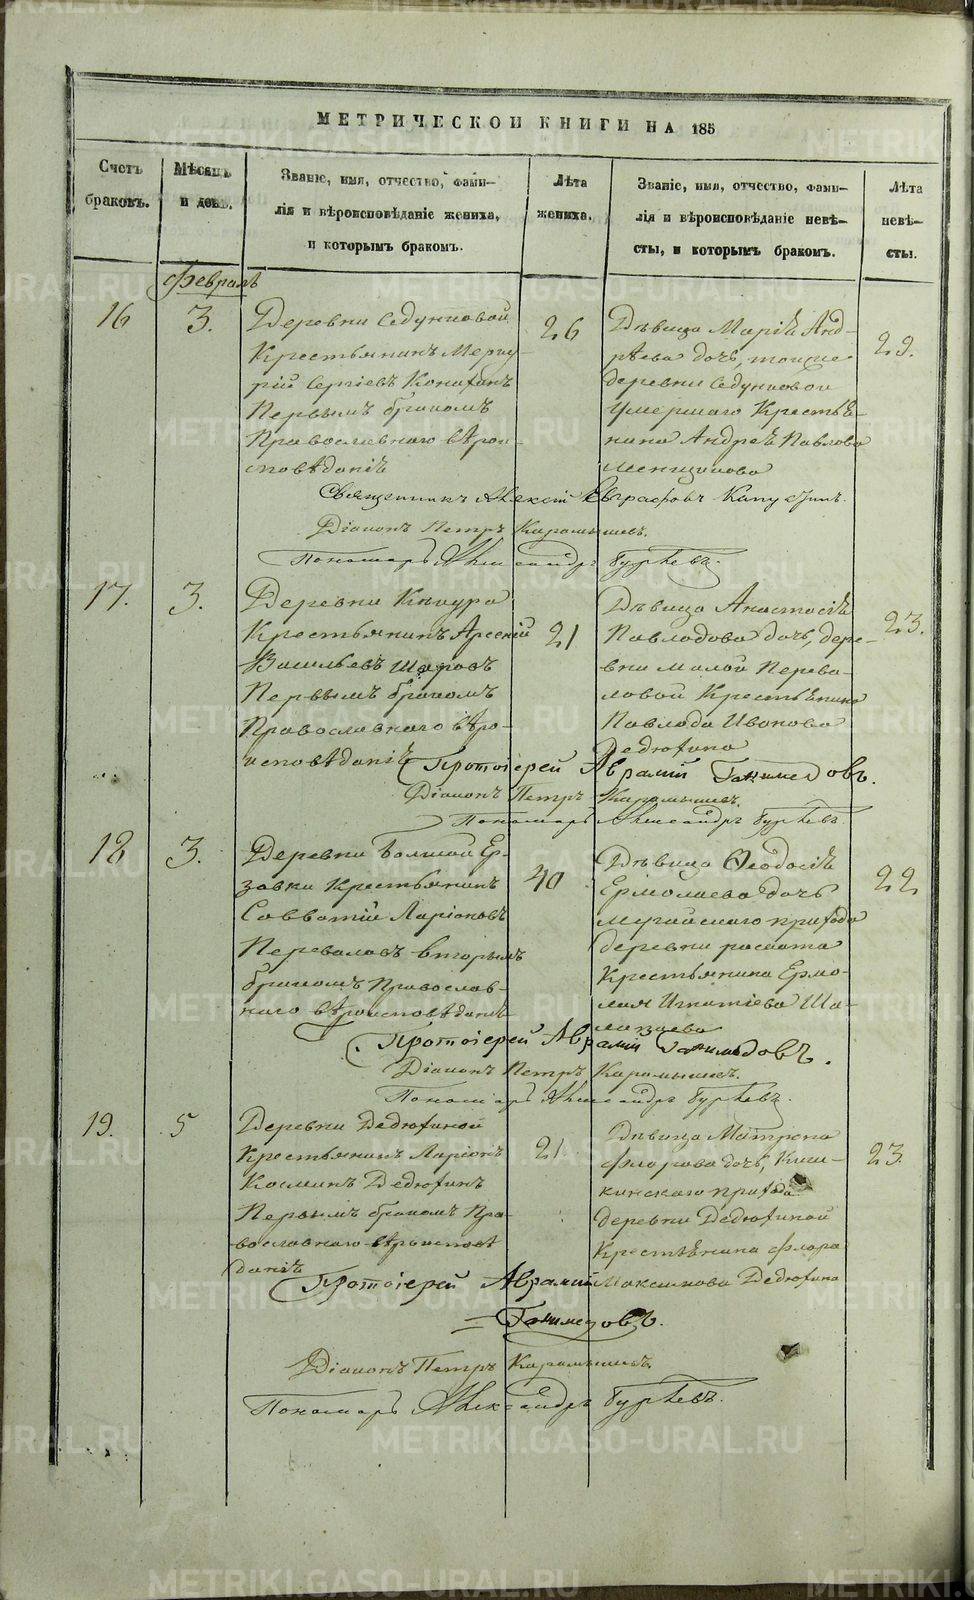 МЕТРИЧЕСКОЙ КНИГИ НА 185
Счетъ браковъ.
Мѣсяцъ и день.
Званіе, имя, отчество, фами-
лія и вѣроисповѣданіе жениха,
и которымъ бракомъ.
Лѣта
жениха.
Званіе, имя, отчество, фами-
лія и вѣроисповѣданіе невѣ-
сты, и которымъ бракомъ.
Лѣта
невѣ-
сты.
Февраль
16
3.
Деревни Седунковой
Крестьянинъ Мерку-
рій Сергіевъ
Первымъ бракомъ
Православнаго вѣрои-
сповѣданія
26
Дѣвица Марія Анд-
рѣева дочь, тойже
деревни Седунковой
умершаго Крестья-
нина Андрея Павлова
22.
Священникъ Алексій Евграфовъ
Діаконъ Петръ Карамышевъ.
Пономарь Александръ
17.
3.
Деревни
Крестьянинъ Арсеній
Васильевъ Шаровъ
Первымъ бракомъ
Православнаго вѣро-
исповѣданія
21
Дѣвица Анастасія
дочь, дере-
вни малой Перева-
ловой Крестьянина
Иванова
Дедюхина
23.
Протоіерей Аврамій Ганимедовъ.
Діаконъ Петръ Карамышевъ.
Пономарь Александръ
18
3.
Деревни Большой Ер-
зовки Крестьянинъ
Савватій Ларіоновъ
Переваловъ вторымъ
бракомъ Православ-
наго вѣроисповѣданія
40
Дѣвица Ѳеодосія
Ермолаева дочь
Мугайскаго прихода
деревни
Крестьянина Ермо-
лая Игнатіева
22
Протоіерей Аврамій Ганимедовъ.
Діаконъ Петръ Карамышевъ.
Пономарь Александръ
19.
5
Деревни Дедюхиной
Крестьянинъ Ларіонъ
Косминъ Дедюхинъ
Первымъ бракомъ Пра-
вославнаго вѣроисповѣ
данія
21
Дѣвица Матрена
Флорова дочь,
прихода
деревни Дедюхиной
Крестьянина Флора
Максимова Дедюхина
23.
Протоіерей Аврамій
Ганимедовъ.
Діаконъ Петръ Карамышевъ.
Пономарь Александръ
METRIKI.GASO-URAL.RU